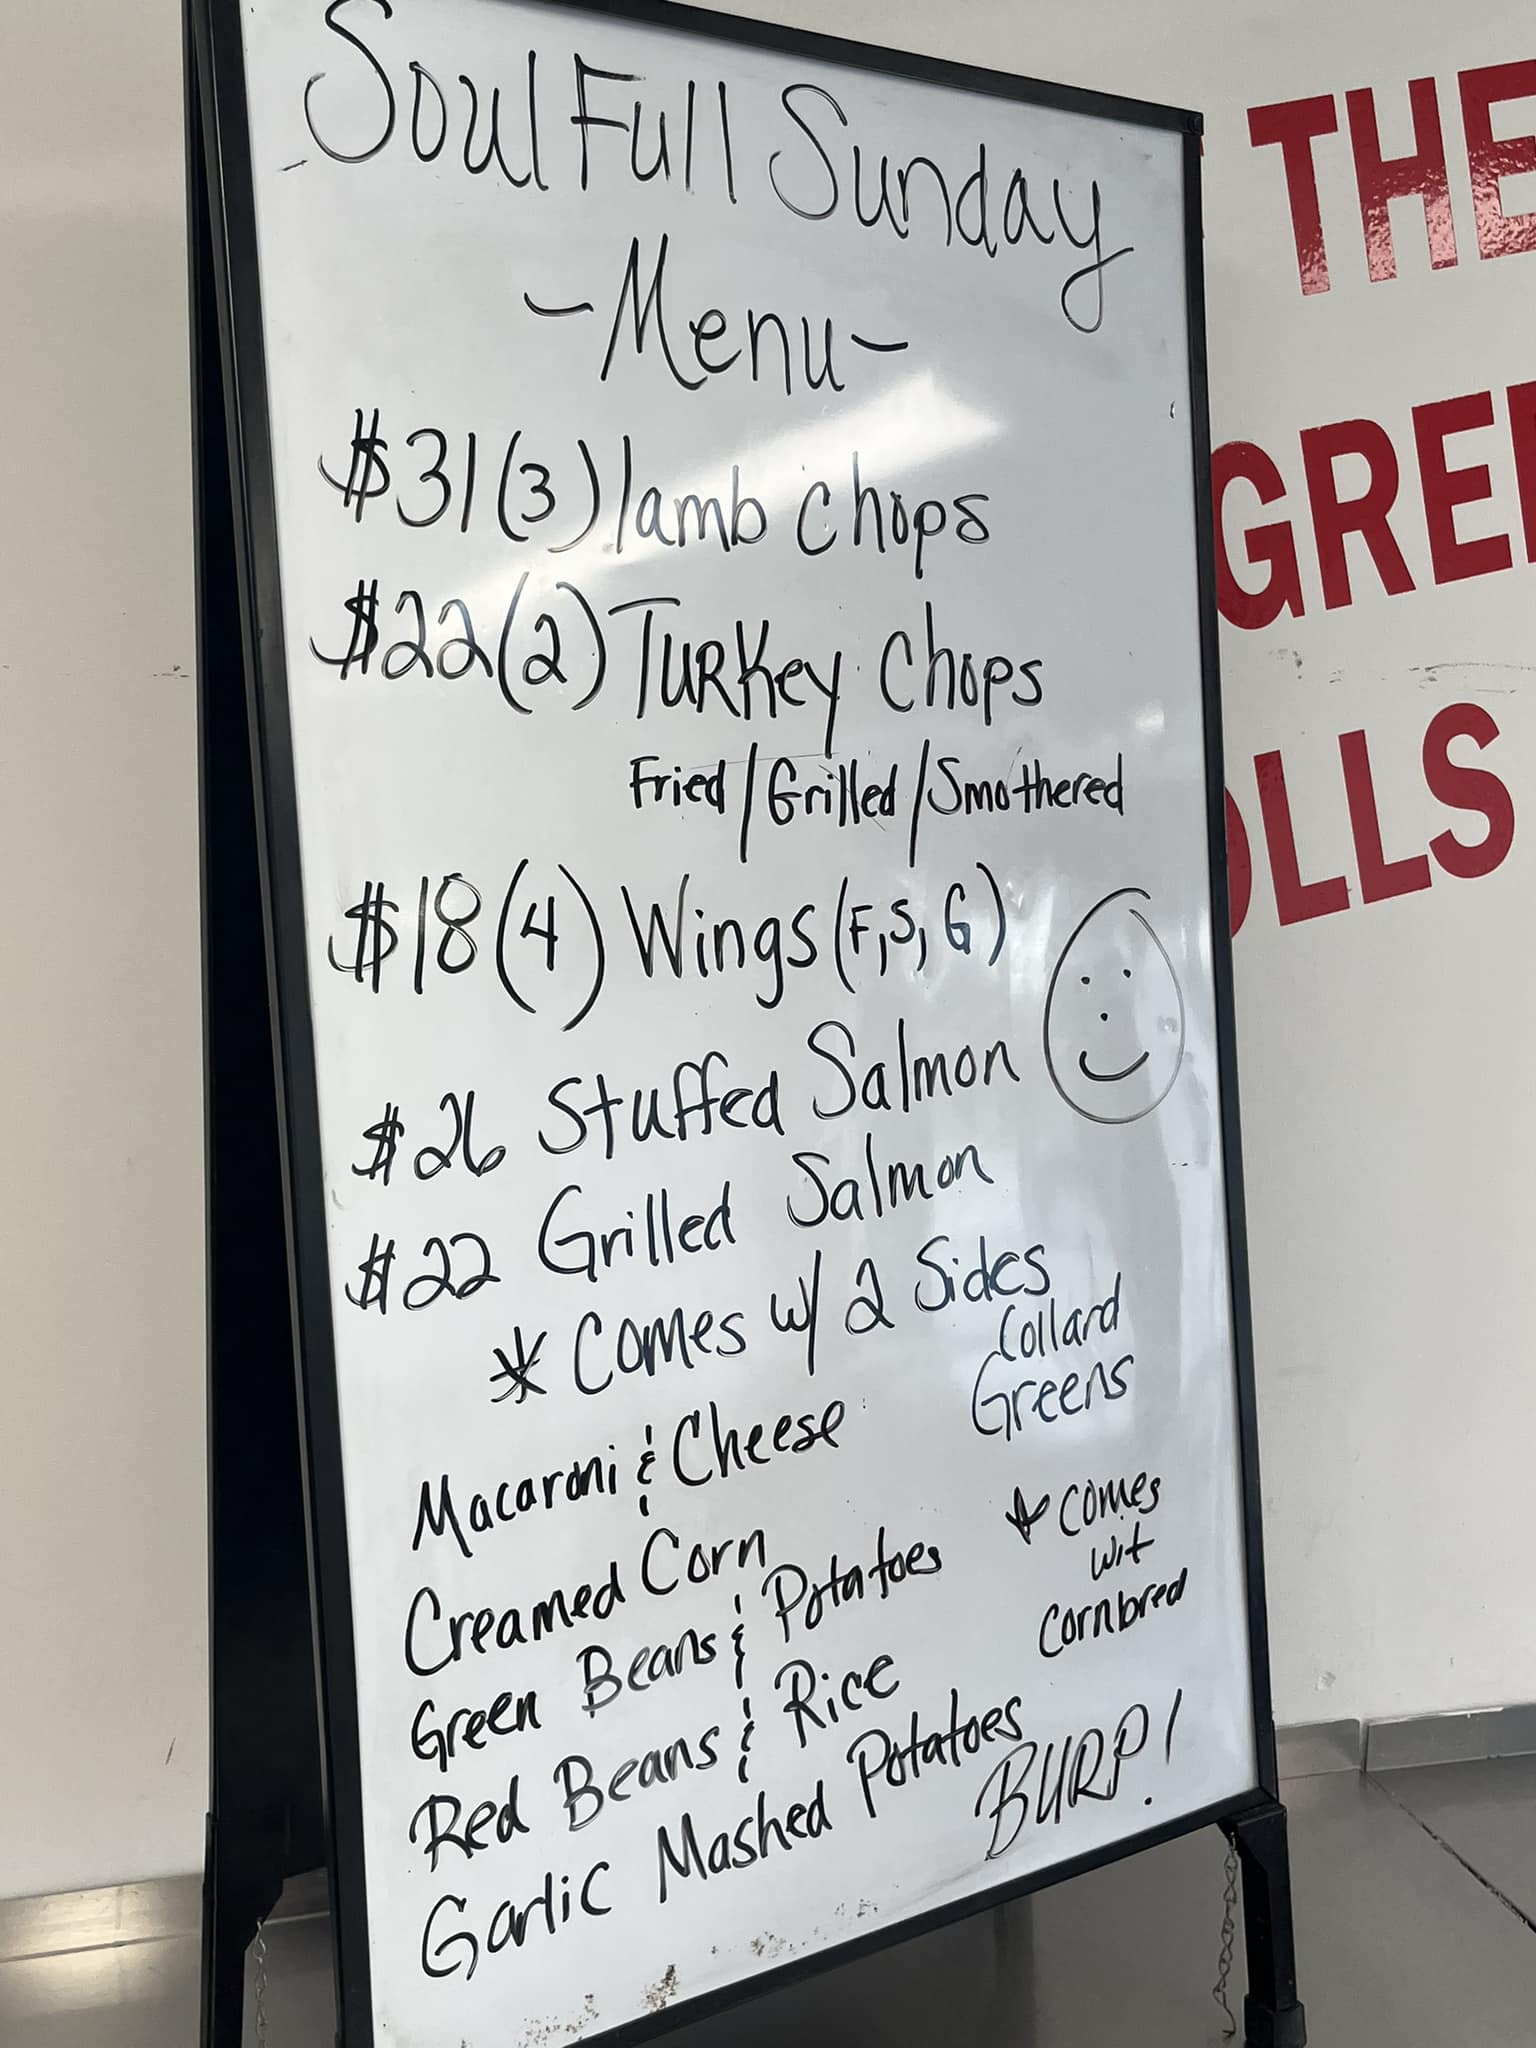 Soul Full Sunday
- Menu -
$31 (3) lamb chops
$22 (2) Turkey Chops
Fried / Grilled / Smothered
$18 (4) Wings (F, S, G)
$26 Stuffed Salmon
$22 Grilled Salmon
* Comes w/ 2 Sides
Collard
Greens
Macaroni & Cheese
Creamed Corn
Green Beans & Potatoes
Red Beans & Rice
Garlic Mashed Potatoes
* Comes
wit
Cornbred
BURP!
THE
GREE
OLLS